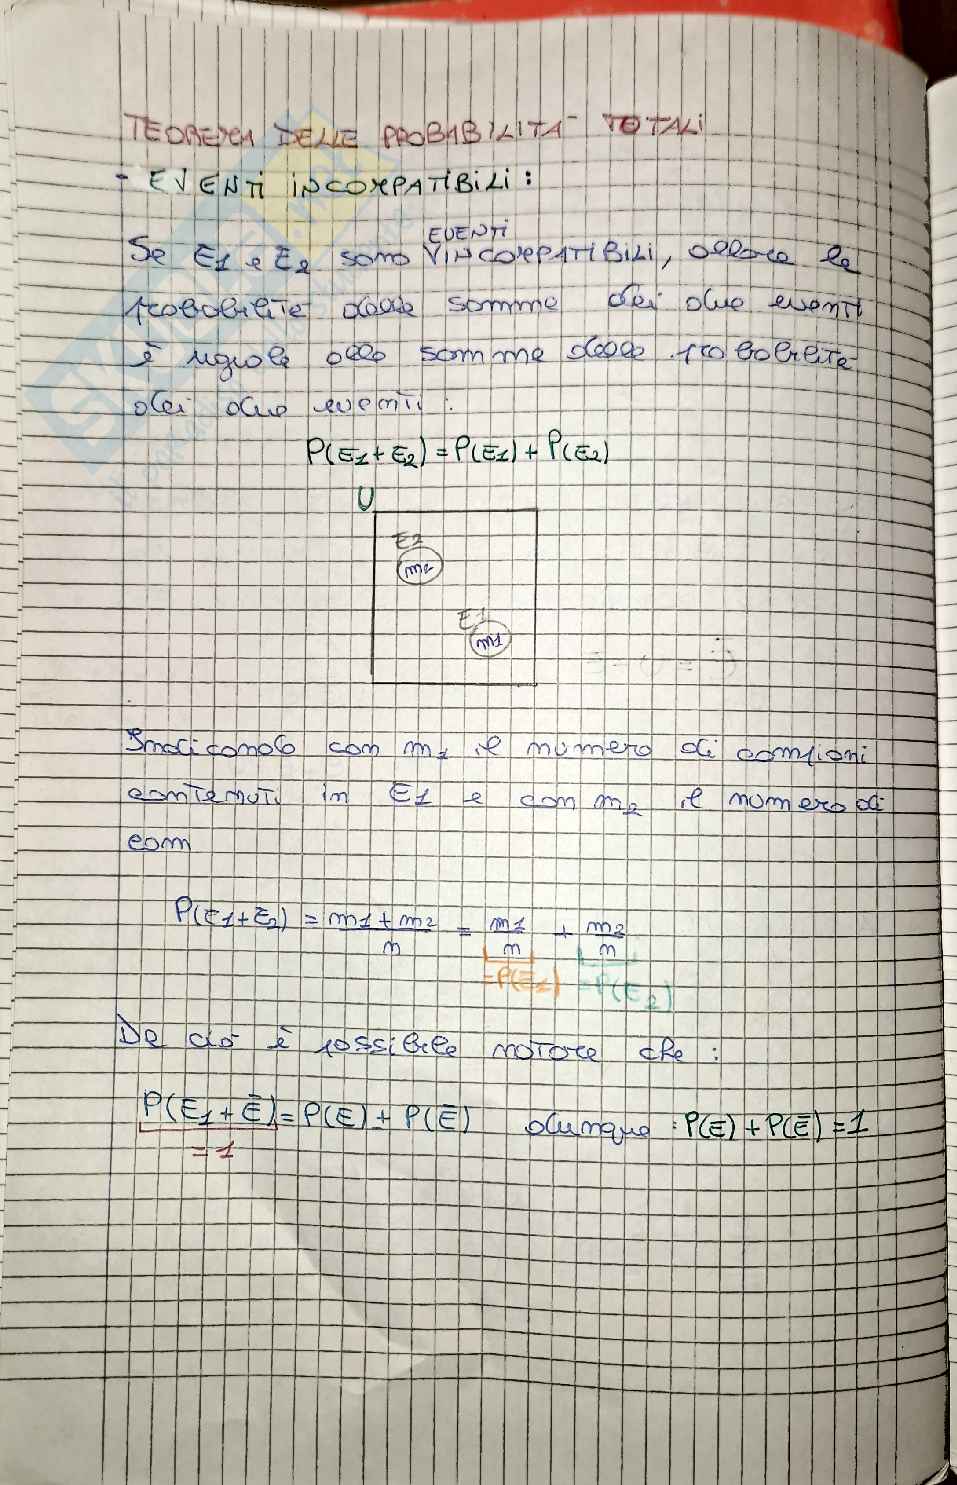 TEOREMA DELLE PROBABILITA' TOTALI
- EVENTI INCOMPATIBILI :
EVENTI
Se E1 e E2 sono V INCOMPATIBILI, allora la
probabilità della somma dei due eventi
è uguale alla somma delle probabilità
dei due eventi :
P(E1+E2) = P(E1) + P(E2)
U
E2
m2
E1
m1
Indicando con m1 il numero di campioni
contenuti in E1 e con m2 il numero di
com
P(E1+E2) = m1+m2/n = m1/n + m2/n
=P(E1) =P(E2)
Da ciò è possibile notare che :
P(E1+Ē) = P(E) + P(Ē) dunque : P(E) + P(Ē) = 1
= 1